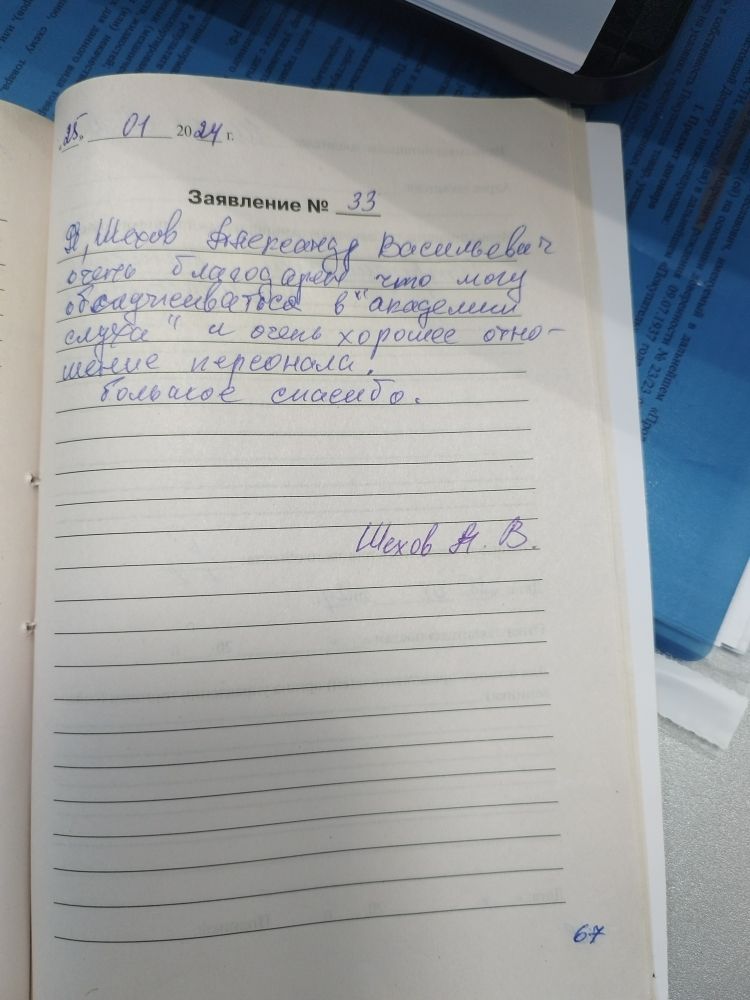 „25“ 01 2024 г.
Заявление № 33
Я, Шехов Александр Васильевич
очень благодарен что могу
обслуживаться в "академии
слуха" и очень хорошее отно-
шение персонала.
большое спасибо.
Шехов А. В.
67